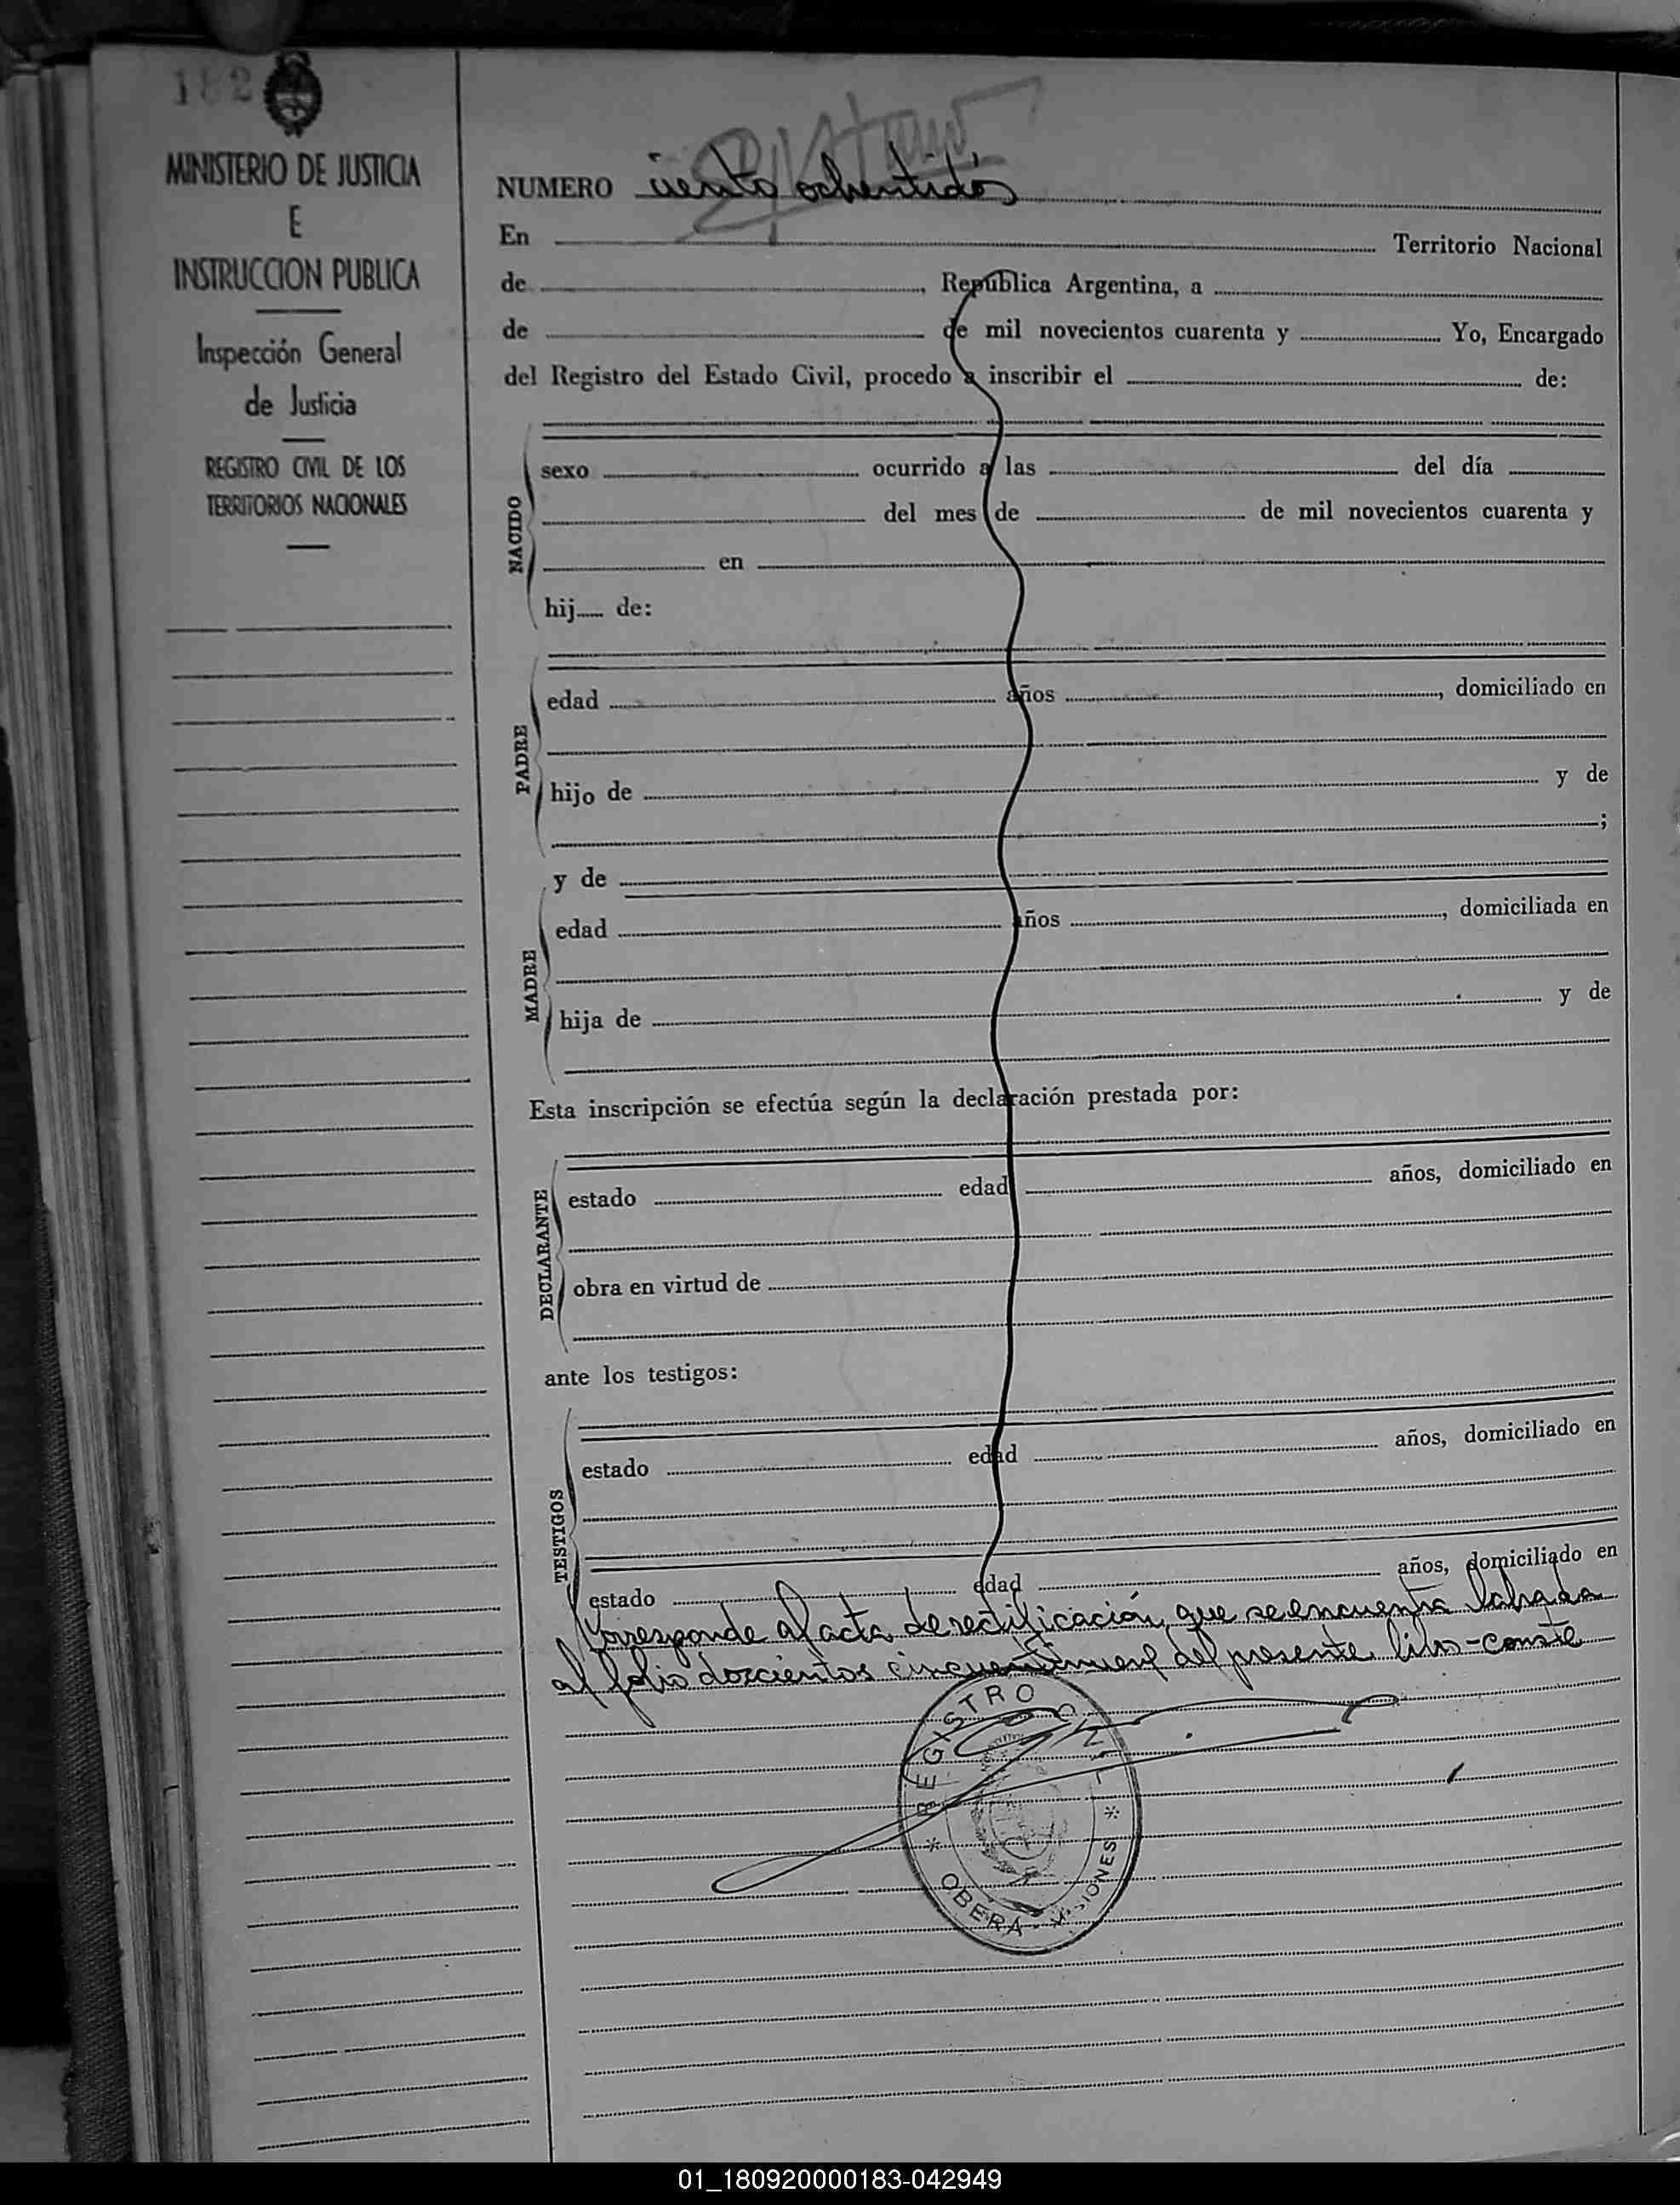 182
MINISTERIO DE JUSTICIA
E
INSTRUCCION PUBLICA
Inspección General
de Justicia
REGISTRO CIVIL DE LOS
TERRITORIOS NACIONALES
NUMERO ciento ochentidós
En Territorio Nacional
de , República Argentina, a
de de mil novecientos cuarenta y Yo, Encargado
del Registro del Estado Civil, procedo a inscribir el de:
NACIDO
sexo ocurrido a las del día
del mes de de mil novecientos cuarenta y
en
hij de:
PADRE
edad años , domiciliado en
hijo de y de
;
y de
MADRE
edad años , domiciliada en
hija de y de
Esta inscripción se efectúa según la declaración prestada por:
DECLARANTE
estado edad años, domiciliado en
obra en virtud de
ante los testigos:
TESTIGOS
estado edad años, domiciliado en
estado edad años, domiciliado en
Corresponde al acta de rectificación, que se encuentra labrada
al folio doscientos cincuentinueve del presente libro - conste
REGISTRO CIVIL
* OBERA - MISIONES *
01_180920000183-042949